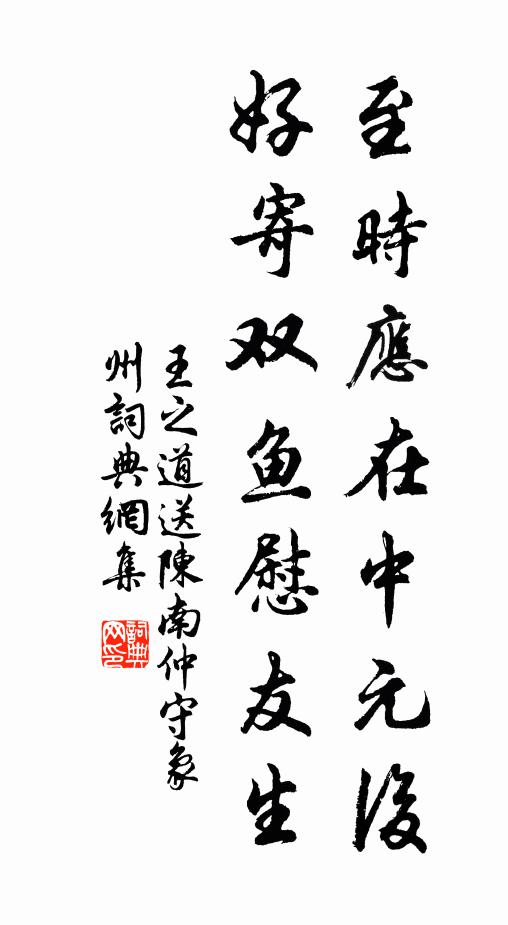 至時應在中元後
好寄双鱼慰友生
王之道送陳南仲守象
州詞典網集
詞典
网印